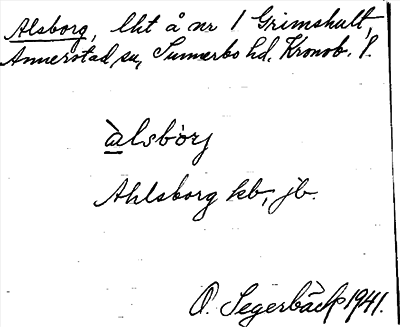 Alsborg, lht å nr 1 Grimshult,
Annerstad sn, Sunnerbo hd. Kronob. l.
àlsbòrj
Ahlsborg kb, jb.
O. Segerbäck 1941.